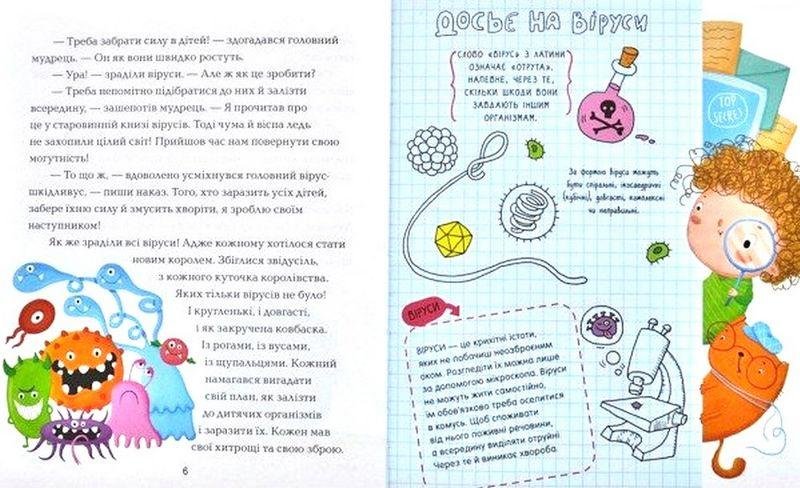 — Треба забрати силу в дітей! — здогадався головний
мудрець. — Он як вони швидко ростуть.
— Ура! — зраділи віруси. — Але ж як це зробити?
— Треба непомітно підібратися до них й залізти
всередину, — зашепотів мудрець. — Я прочитав про
це у старовинній книзі вірусів. Тоді чума й віспа ледь
не захопили цілий світ! Прийшов час нам повернути свою
могутність!
— То що ж, — вдоволено усміхнувся головний вірус-
шкідливус, — пиши наказ. Того, хто заразить усіх дітей,
забере їхню силу й змусить хворіти, я зроблю своїм
наступником!
Як же зраділи всі віруси! Адже кожному хотілося стати
новим королем. Збіглися звідусіль,
з кожного куточка королівства.
Яких тільки вірусів не було!
І кругленькі, і довгасті,
і як закручена ковбаска.
Із рогами, із вусами,
із щупальцями. Кожний
намагався вигадати
свій план, як залізти
до дитячих організмів
і заразити їх. Кожен мав
свої хитрощі та свою зброю.
6
ДОСЬЄ НА ВІРУСИ
СЛОВО «ВІРУС» З ЛАТИНИ
ОЗНАЧАЄ «ОТРУТА».
НАПЕВНЕ, ЧЕРЕЗ ТЕ,
СКІЛЬКИ ШКОДИ ВОНИ
ЗАВДАЮТЬ ІНШИМ
ОРГАНІЗМАМ.
TOP
SECRET
За формою віруси можуть
бути спіральні, ікосаедричні
(кубічні), довгасті, комплексні
чи неправильні.
ВІРУСИ
ВІРУСИ — це крихітні істоти,
яких не побачиш неозброєним
оком. Розгледіти їх можна лише
за допомогою мікроскопа. Віруси
не можуть жити самостійно,
їм обов'язково треба оселитися
в комусь. Щоб споживати
від нього поживні речовини,
а всередину виділяти отруйні.
Через те й виникає хвороба.